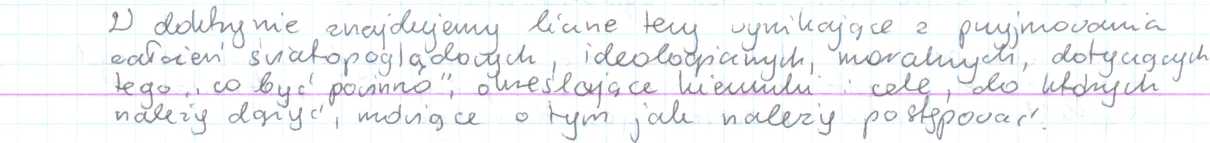 W doktrynie znajdujemy liczne tezy wynikające z przyjmowania
założeń światopoglądowych, ideologicznych, moralnych, dotyczących
tego, „co być powinno", określające kierunki i cele, do których
należy dążyć, mówiące o tym jak należy postępować.